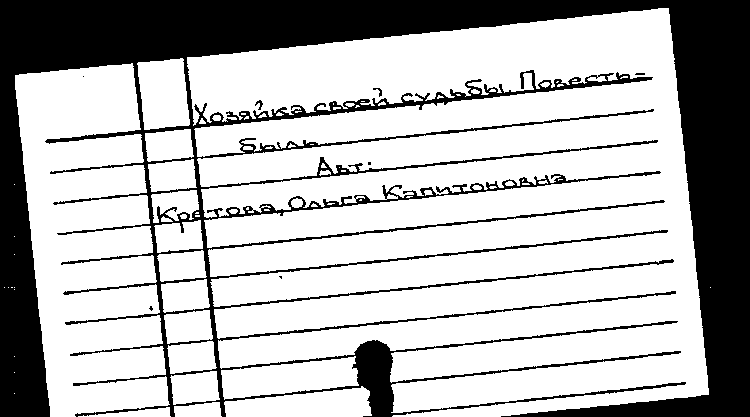 Хозяйка своей судьбы. Повесть-
быль
Авт:
Кретова, Ольга Капитоновна